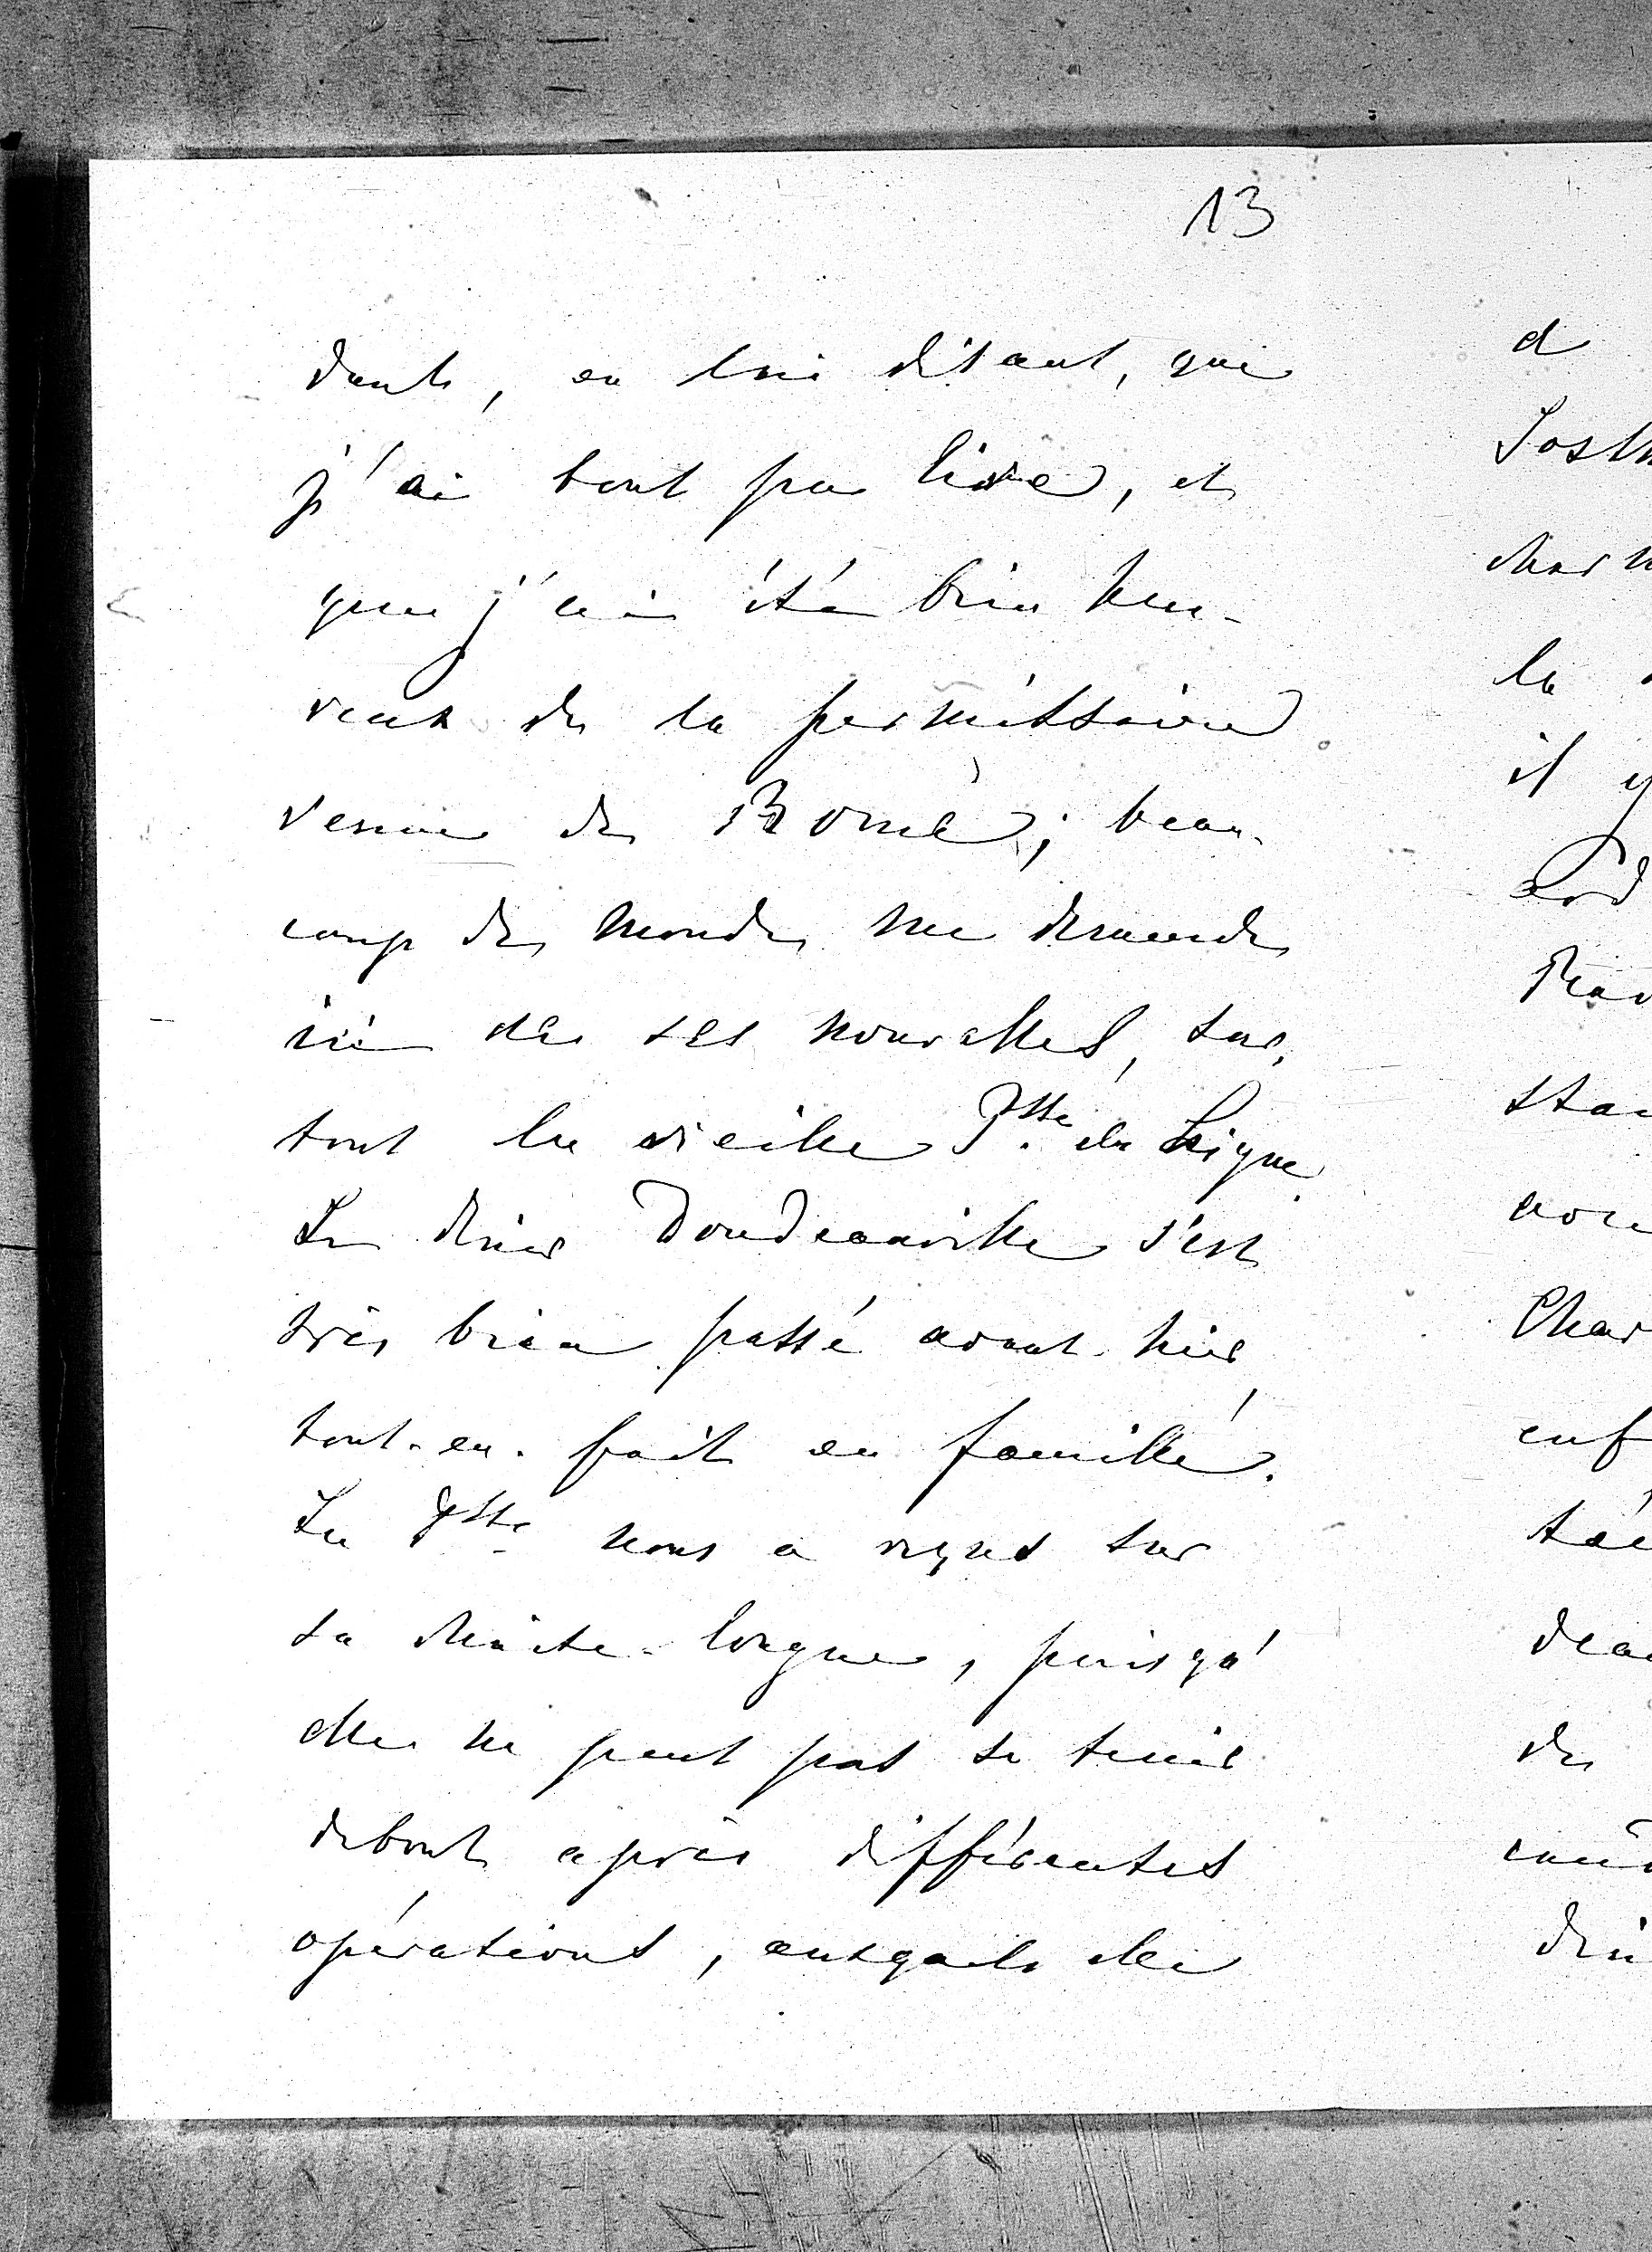 13
dants, en lui disant, que
j'ai tout pu lire, et
que j'ai été bien heu-
reux de la permission
venue de Rome; beau-
coup de monde me demande
ici de ses nouvelles, sur-
tout la vieille Psse de Ligne.
Le diner Doudeauville s'est
très bien passé avant-hier,
tout-en-fait en famille.
La Psse nous a reçus sur
sa chaise-longue, puisqu'
elle ne peut pas se tenir
debout après différentes
opérations, auxquels elle
d
la
il y
Char
enf
de